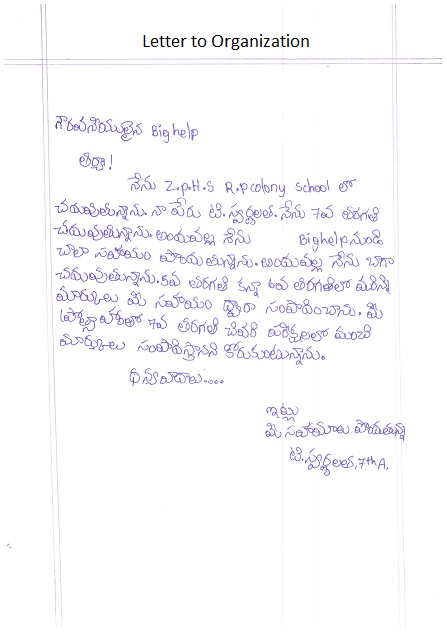 Letter to Organization
గౌరవనీయులైన Bighelp
తీర్చా!
నేను Z.p.H.S R.P colony School లో
చదువుతున్నాను. నా పేరు టి. స్వర్ణలత. నేను 7వ తరగతి
చదువుతున్నాను. అందువల్ల నేను Bighelp నుండి
చాలా సహాయం పొందుతున్నాను. అందువల్ల నేను బాగా
చదువుతున్నాను. 5వ తరగతి కన్నా 6వ తరగతిలో మరిన్ని
మార్కులు మీ సహాయం ద్వారా సంపాదించాను. మీ
ప్రోత్సాహంతో 7వ తరగతి చివరి పరీక్షలలో మంచి
మార్కులు సంపాదిస్తానని కోరుకుంటున్నాను.
ధన్యవాదాలు....
ఇట్లు
మీ సహాయాలు పొందుతున్న
టి. స్వర్ణలత, 7th A.